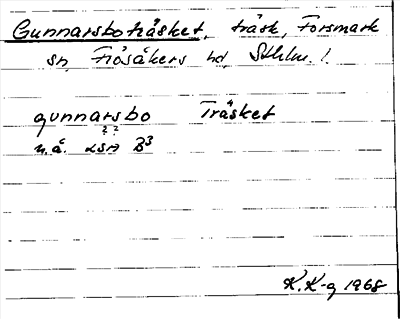 Gunnarsboträsket, träsk, Forsmark
sn, Frösåkers hd, Sthlm. l.
gunnarsbo Träsket
? ?
n.å. LSA B3
K.K-g 1968